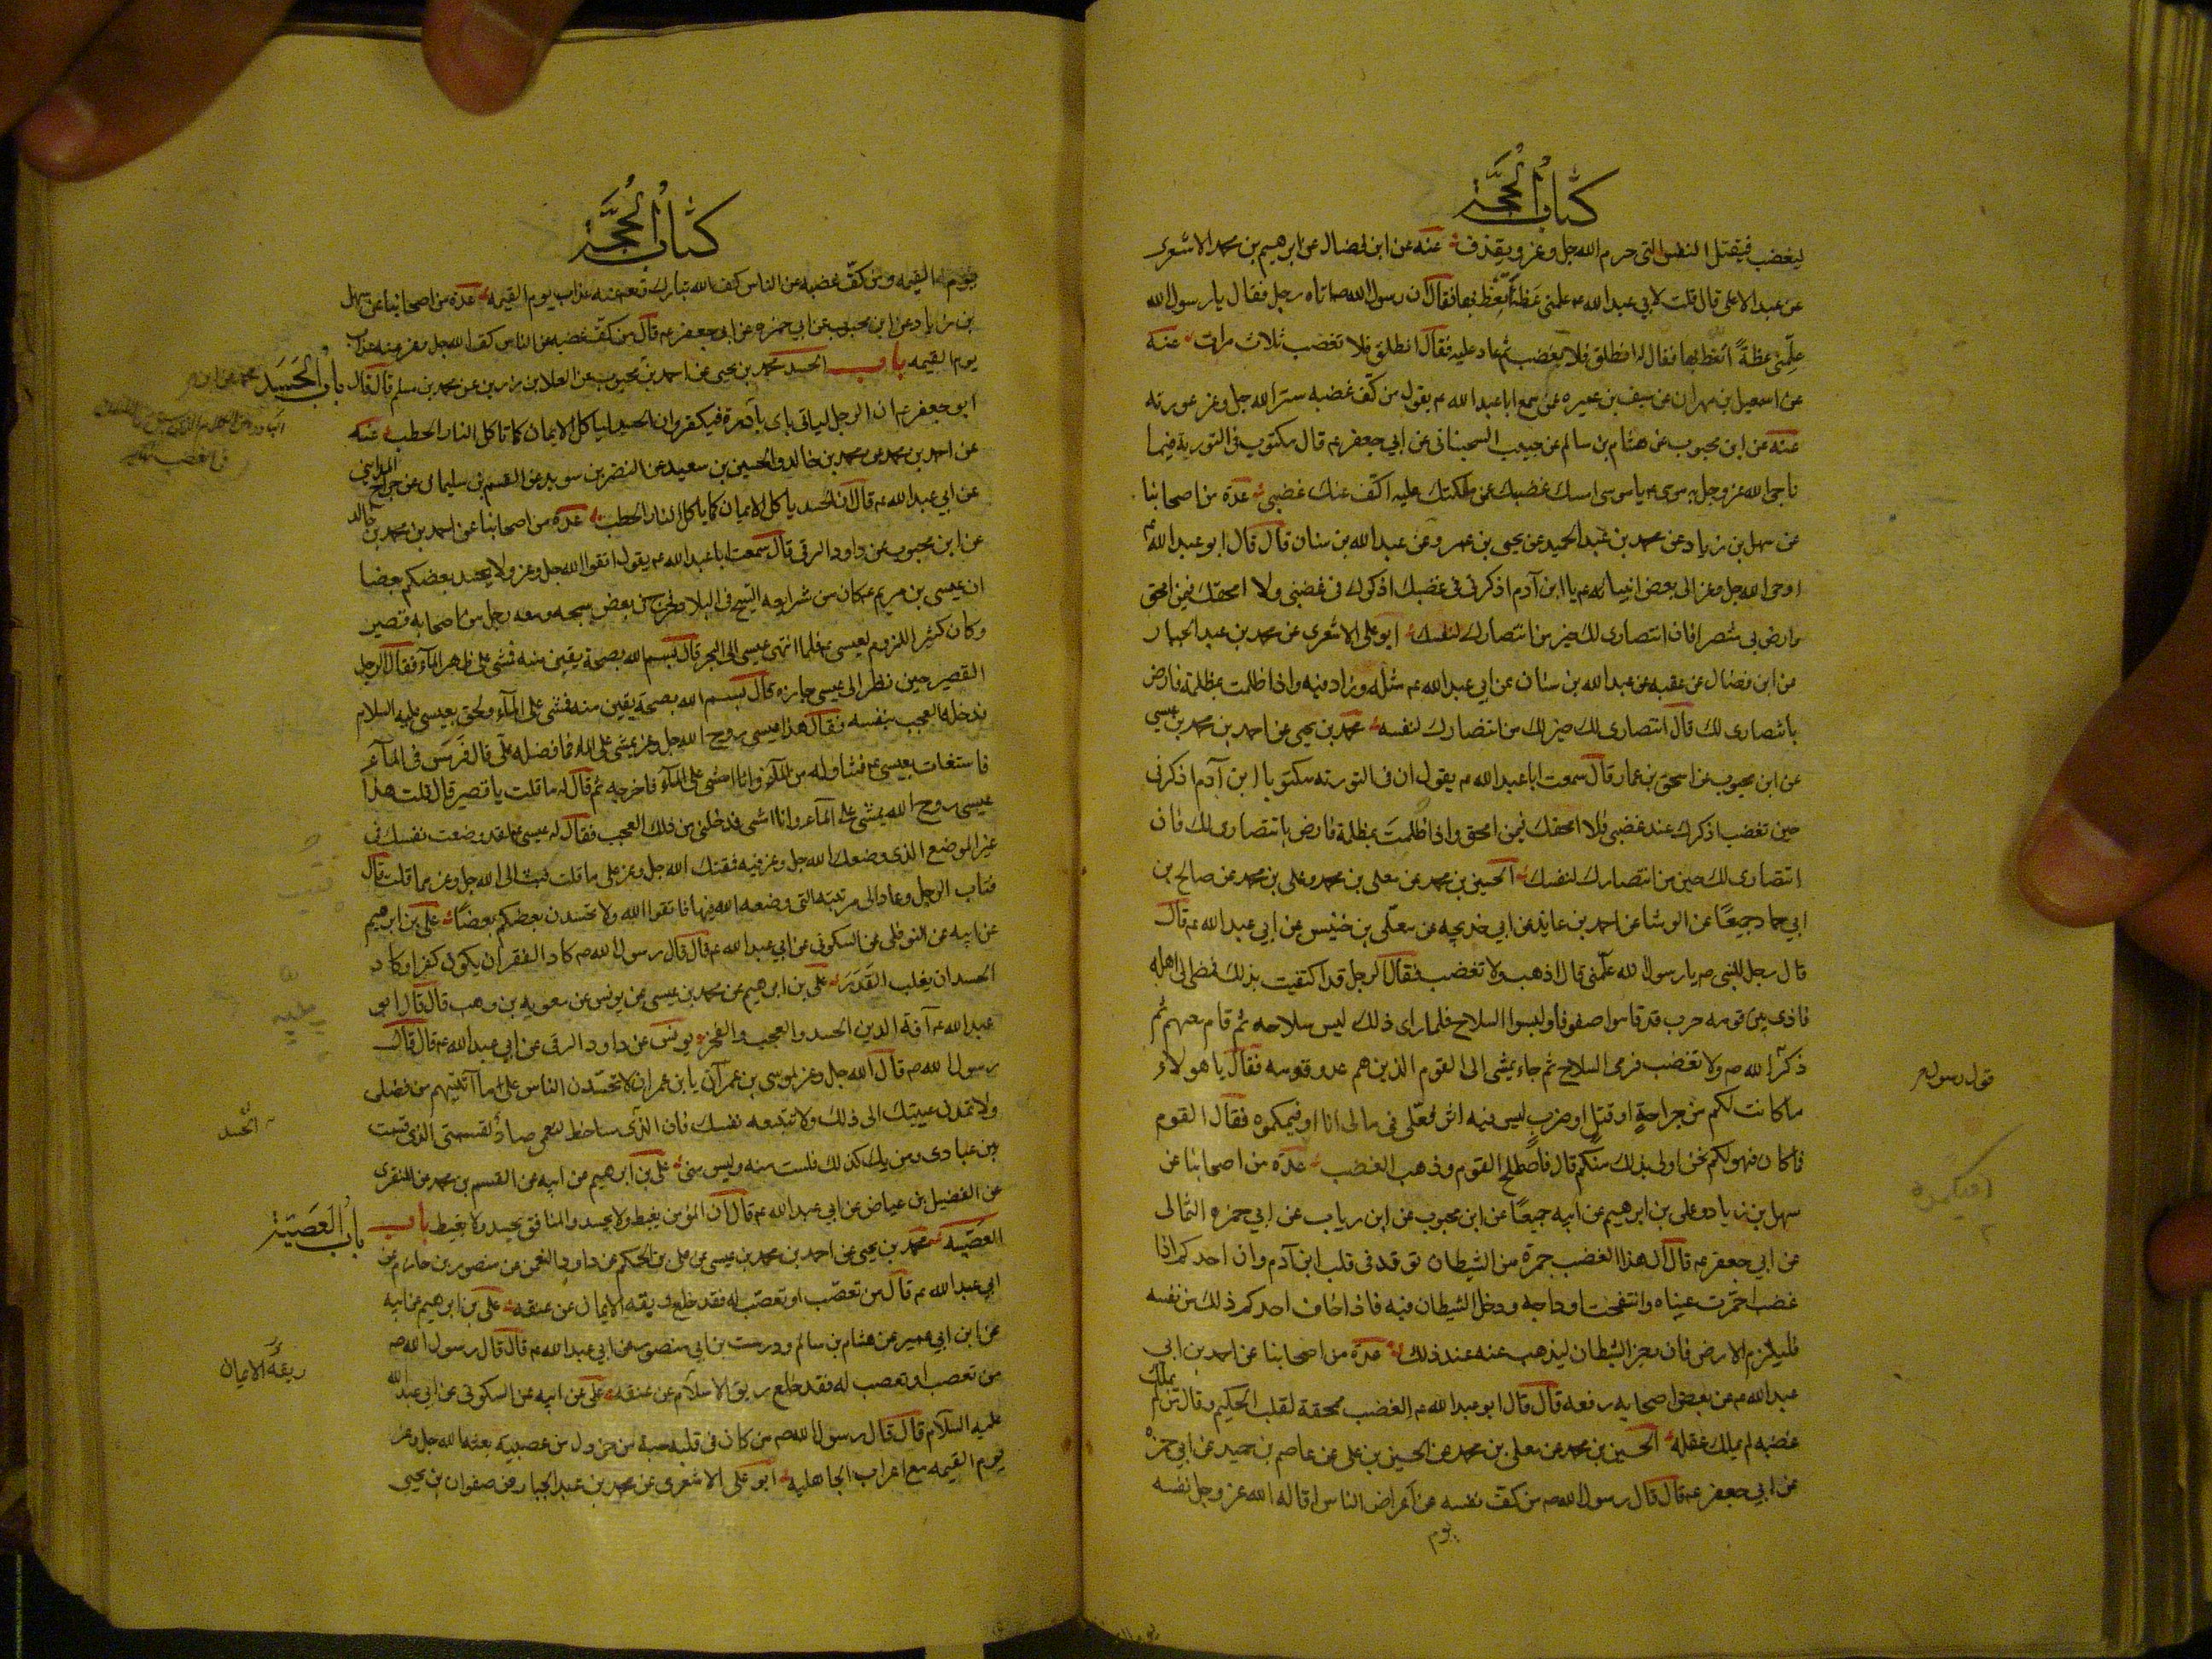 كتاب الحجة
ليغضب فيقتل النفس التى حرم الله جل وعز ويقذف عنه عن ابن فضال عن ابرهيم بن محمد الاشعرى
عن عبد الاعلى قال قلت لابي عبد الله عم علمنى عظة اتعظ بها فقال ان رسول الله ص اتاه رجل فقال يا رسول الله
علمنى عظة اتعظ بها فقال له انطلق فلا تغضب ثم عاد عليه فقال انطلق فلا تغضب ثلاث مرات عنه
عن اسمعيل بن مهران عن سيف بن عميره عمن سمع ابا عبد الله عم يقول من كف غضبه ستر الله جل وعز عورته
عنه عن ابن محبوب عن هشام بن سالم عن حبيب السجستانى عن ابي جعفر عم قال مكتوب فى التورية فيما
ناجى الله عز وجل به موسى عم يا موسى امسك غضبك عمن ملكتك عليه اكف عنك غضبى عدة من اصحابنا
عن سهل بن زياد عن محمد بن عبد الحميد عن يحيى بن عمرو عن عبد الله بن سنان قال قال ابو عبد الله عم
اوحى الله جل وعز الى بعض انبيائه عم يا ابن آدم اذكرنى فى غضبك اذكرك فى غضبى ولا امحقك فيمن امحق
وارض بى منتصرا فان انتصارى لك خير من انتصارك لنفسك ابو على الاشعرى عن محمد بن عبد الجبار
عن ابن فضال عن عقبه عن عبد الله بن سنان عن ابي عبد الله عم مثله وزاد فيه واذا ظلمت بمظلمة فارض
بانتصارى لك قال انتصارى لك خير لك من انتصارك لنفسه محمد بن يحيى عن احمد بن محمد بن عيسى
عن ابن محبوب عن اسحق بن عمار قال سمعت ابا عبد الله عم يقول ان فى التوريته مكتوبا يا ابن آدم اذكرنى
حين تغضب اذكرك عند غضبى فلا امحقك فيمن امحق واذا ظلمت بمظلة فارض بانتصارى لك فان
انتصارى لك خير من انتصارك لنفسك الحسين بن محمد عن معلى بن محمد وعلى بن محمد عن صالح بن
ابي حماد جميعًا عن الوشا عن احمد بن عايذ عن ابي خديجه عن معلى بن خنيس عن ابي عبد الله عم قال
قال رجل للنبى ص يا رسول الله علمنى قال اذهب ولا تغضب فقال الرجل قد اكتفيت بذلك فمضى الى اهله
فاذى بين قومه حرب قد قاموا صفوفا ولبسوا السلاح فلما راى ذلك لبس سلاحه ثم قام معهم ثم
ذكر الله ص ولا تغضب فرمى السلاح ثم جاء يمشى الى القوم الذين هم عدو قومه فقال يا هولاء
ما كانت لكم من جراحة او قتل او ضرب ليس فيه اثر فعلى فى مالى انا اوفيكموه فقال القوم
فما كان فهو لكم نحن اولى بذلك منكم قال فاصطلح القوم وذهب الغضب عدة من اصحابنا عن
سهل بن زياد وعلى بن ابرهيم عن ابيه جميعًا عن ابن محبوب عن ابن رياب عن ابي حمزه الثمالى
عن ابي جعفر عم قال ان هذا الغضب جمرة من الشيطان توقد فى قلب ابن آدم وان احدكم اذا
غضب احمرت عيناه وانتفخت اوداجه ودخل الشيطان فيه فاذا خاف احدكم ذلك من نفسه
فليلزم الارض فان رجز الشيطان ليذهب عنه عند ذلك عدة من اصحابنا عن احمد بن ابي
عبد الله عم عن بعض اصحابه رفعه قال قال ابو عبد الله عم الغضب ممحقة لقلب الحكيم وقال من لم يملك
غضبه لم يملك عقله الحسين بن محمد عن معلى بن محمد عن الحسن بن على عن عاصم بن حميد عن ابي حمزه
عن ابي جعفر عم قال قال رسول الله ص من كف نفسه عن اعراض الناس اقاله الله عز وجل نفسه
يوم
قول رسول ص
كتاب الحجة
يوم القيمه ومن كف غضبه عن الناس كف الله تبارك وتع عنه عذاب يوم القيمه عدة من اصحابنا عن سهل
بن زياد عن ابن محبوب عن ابي حمزه عن ابي جعفر عم قال من كف غضبه عن الناس كف الله جل وعز عنه عذاب
يوم القيمه باب الحسد محمد بن يحيى عن احمد بن محبوب عن العلا بن رزين عن محمد بن مسلم قال قال
باب الحسد
ابو جعفر عم ان الرجل لياتى باى بادرة فيكفر وان الحسد لياكل الايمان كما تاكل النار الحطب عنه
عن احمد بن محمد عن محمد بن خالد والحسين بن سعيد عن النضر بن سويد عن القسم بن سليمان عن جراح المداينى
عن ابي عبد الله عم قال ان الحسد ياكل الايمان كما ياكل النار الحطب عدة من اصحابنا عن احمد بن محمد بن خالد
عن ابن محبوب عن داود الرقى قال سمعت ابا عبد الله عم يقول اتقوا الله جل وعز ولا يحسد بعضكم بعضا
ان عيسى بن مريم عم كان من شرايعه السيح فى البلاد فخرج فى بعض سيحه ومعه رجل من اصحابه قصير
وكان كثير اللزوم لعيسى عم فلما انتهى عيسى الى البحر قال بسم الله بصحة يقين منه فمشى على ظهر المآء فقال الرجل
القصير حين نظر الى عيسى جازه قال بسم الله بصحة يقين منه فمشى على المآء ولحق بعيسى عليه السلام
فدخله العجب بنفسه فقال هذا عيسى روح الله جل وعز يمشى على الماء فما فضله على قال فرمس فى المآء
فاستغاث بعيسى عم فتناوله من المآء فاخرجه ثم قال له ما قلت يا قصير قال قلت هذا
عيسى روح الله يمشى على المآء وانا امشى فدخلنى من ذلك العجب فقال له عيسى عم لقد وضعت نفسك فى
غير الموضع الذى وضعك الله جل وعز فيه فمقتك الله جل وعز على ما قلت فتب الى الله جل وعز مما قلت قال
فتاب الرجل وعاد الى مرتبته التى وضعه الله فيها فاتقوا الله ولا تحسدن بعضكم بعضًا على بن ابرهيم
عن ابيه عن النوفلى عن السكونى عن ابي عبد الله عم قال قال رسول الله ص كاد الفقر ان يكون كفرا وكاد
الحسد ان يغلب القدر على بن ابرهيم عن محمد بن عيسى عن يونس عن معويه بن وهب قال قال ابو
عبد الله عم آفة الدين الحسد والعجب والفخر يونس عن داود الرقى عن ابي عبد الله عم قال قال
رسول الله ص قال الله جل وعز لموسى بن عمران يا بن عمران لا تحسدن الناس على ما آتيتهم من فضلى
ولا تمدن عينيك الى ذلك ولا تتبعه نفسك فان الذى ساخط لنعمى صاد لقسمتى الذى قسمت
الحسد
بين عبادى ومن يك كذلك فلست منه وليس منى على بن ابرهيم عن ابيه عن القسم بن محمد عن المنقرى
عن الفضيل بن عياض عن ابي عبد الله عم قال ان المؤمن يغبط ولا يحسد والمنافق يحسد ولا يغبط باب
باب العصبية
العصبية محمد بن يحيى عن احمد بن محمد بن عيسى عن على بن الحكم عن داود بن النعمن عن منصور بن حازم عن
ابي عبد الله عم قال من تعصب او تعصب له فقد خلع ربقة الايمان عن عنقه على بن ابرهيم عن ابيه
عن ابن ابي عمير عن هشام بن سالم ودرست بن ابي منصور عن ابي عبد الله عم قال قال رسول الله ص
ربقة الايمان
من تعصب او تعصب له فقد خلع ربق الاسلام عن عنقه على عن ابيه عن السكونى عن ابي عبد الله
عليه السلام قال قال رسول الله ص من كان فى قلبه حبة من خردل من عصبية بعثه الله جل وعز
يوم القيمه مع اعراب الجاهليه ابو على الاشعرى عن محمد بن عبد الجبار عن صفوان بن يحيى